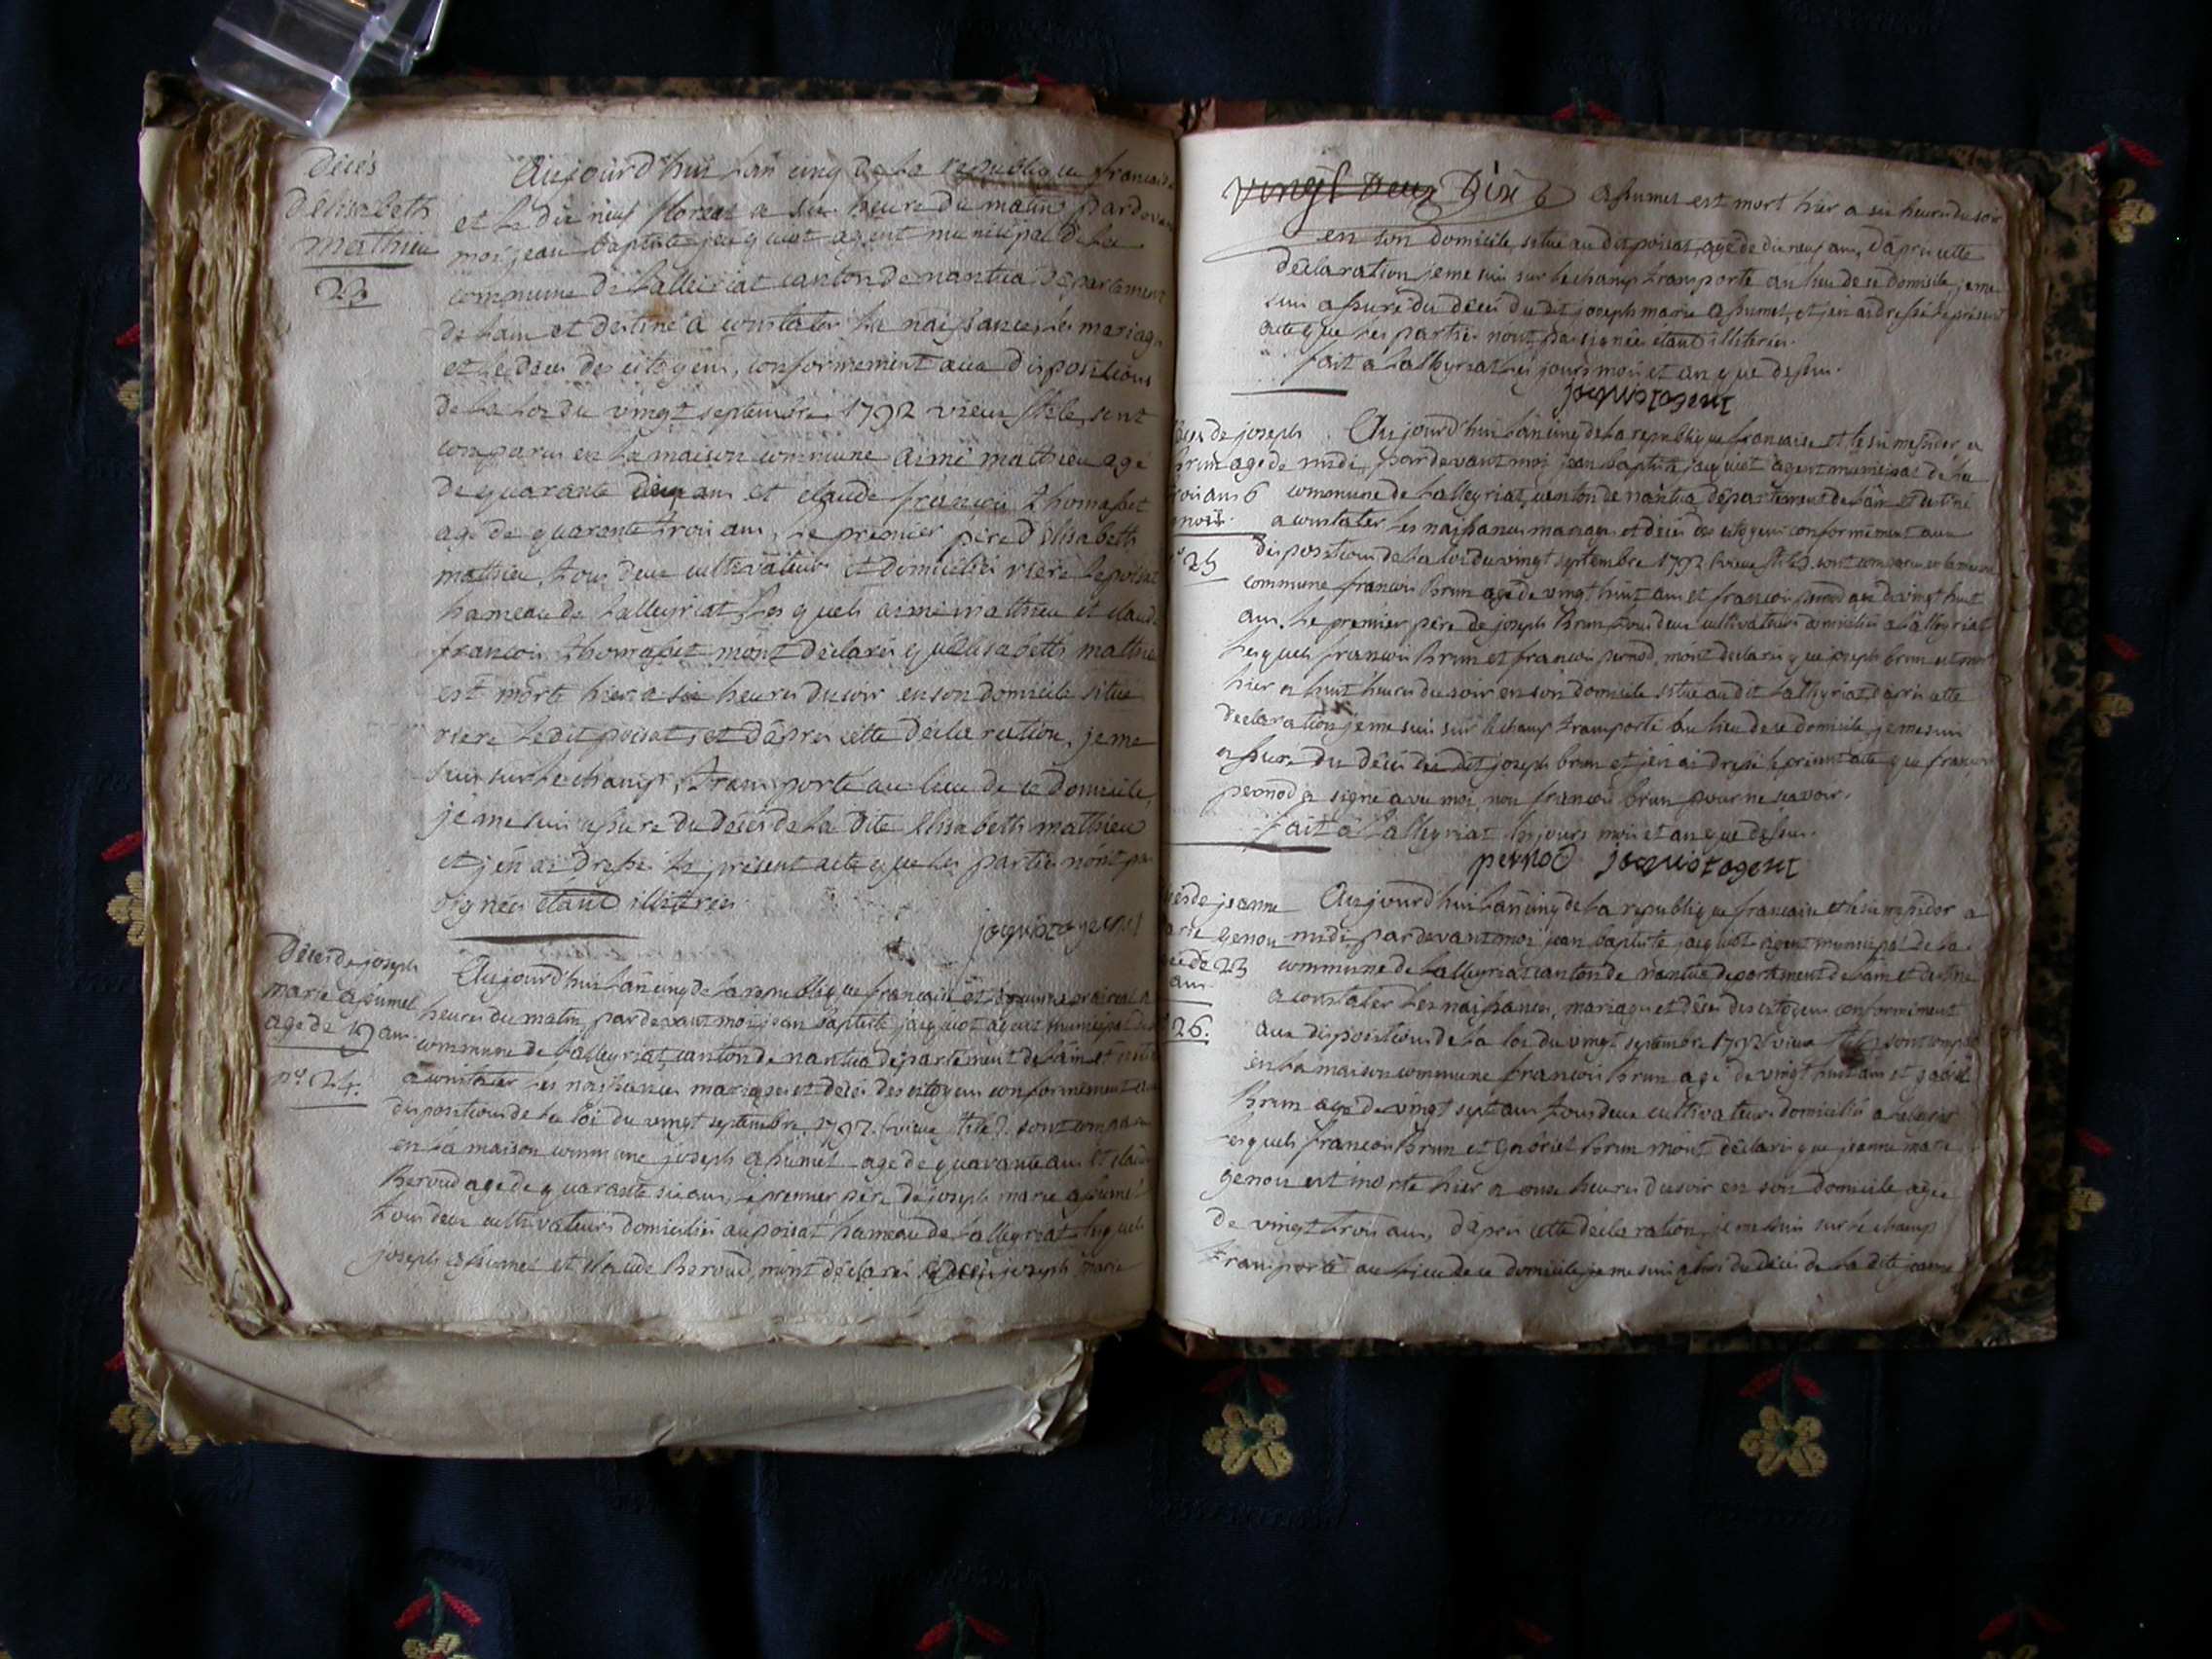 Décès
D'Elisabeth
mathieu
23
Aujourd'hui L'an cinq de La republique francaise
et Le dix neuf floreal a six heure du matin, pardevant
moi jean baptiste jacquiot agent municipal de La
commune de Lalleiriat canton de nantua departement
de L'ain et destiné a constater Les naissances Les mariages
et Les Décès des citoyens, conformement aux Dispositions
de La Loi du vingt septembre 1792 vieux stile, sont
comparus en La maison commune aimé mathieu agé
de quarante deux ans et claude francois thomasset
agé de quarante trois ans, Le premier père d'elisabeth
mathieu, tous deux cultivateurs et Domiciliés riere Le poisat
hameau de Lalleyriat, Les quels aimé mathieu et claude
francois thomasset m'ont Déclarés qu'Elisabeth mathieu
est morte hier a six heures du soir en son domicile situé
riere Le dit poisat, et D'après cette déclaration, je me
suis sur Le champ, transporté au lieu de ce Domicile,
je me suis assuré du Décès de La Dite elisabeth mathieu
et j'en ai Dressé Le présent acte que Les parties n'ont pas
signées étant illitérées.
jaquiot agent
Décès de joseph
marie assumel
agé de 19 ans
n.º 24.
Aujourd'hui L'an cinq de La republique francaise et prairial a
heures du matin, pardevant moi jean baptiste jacquiot agent municipal de La
commune de Lalleyriat, canton de nantua departement de L'ain et destiné
a constater Les naissances mariages et décès des citoyens conformement aux
dispositions de La Loi du vingt septembre 1792 (vieux stile). sont comparus
en La maison commune joseph assumel agé de quarante ans et claude
Beroud agé de quarante six ans, Le premier père de joseph marie assumel
tous deux cultivateurs domiciliés au poisat hameau de Lalleyriat Lesquels
joseph assumel et claude Beroud, m'ont déclarés joseph marie
vingt Deux Dix assumel est mort hier a six heures du soir
en son domicile situé au dit poisat, agé de dix neuf ans, d'après cette
déclaration je me suis sur Le champ transporté au lieu de ce domicile, je me
suis assuré du décès du dit joseph marie assumel, et j'en ai dressé Le présent
acte que Les parties n'ont pas signées étant illiterés.
fait a Lalleyriat Les jours mois et an que dessus.
jaquiot agent
Décès de joseph
Brun agé de
trois ans 6
mois.
n.º 25
Aujourd'hui L'an cinq de La republique francaise et Le six messidor a
midi, pardevant moi jean baptiste jacquiot agent municipal de La
commune de Lalleyriat, canton de nantua departement de L'ain et destiné
a constater Les naissances mariages et décès des citoyens conformement aux
dispositions de La Loi du vingt septembre 1792 (vieux stile). sont comparus en La maison
commune francois Brun agé de vingt huit ans et francois pernod agé de vingt huit
ans. Le premier père de joseph Brun tous deux cultivateurs domiciliés a Lalleyriat
Lesquels francois Brun et francois pernod, m'ont declarés que joseph brun est mort
hier a huit heures du soir en son domicile situé au dit Lalleyriat, d'après cette
declaration je me suis sur Le champ transporté au lieu de ce domicile, je me suis
assuré du décès du dit joseph brun et j'en ai dressé Le présent acte que francois
pernod a signé avec moi, non francois brun pour ne scavoir.
fait a Lalleyriat Les jours mois et an que dessus.
pernod jaquiot agent
Décès de jeanne
marie genou
agée de 23
ans
26.
Aujourd'hui L'an cinq de La republique francaise et Le six messidor a
midi, pardevant moi jean baptiste jacquiot agent municipal de La
commune de Lalleyriat canton de nantua departement de L'ain et destiné
a constater Les naissances, mariages et décès des citoyens conformement
aux dispositions de La Loi du vingt septembre 1792 (vieux stile) sont comparus
en La maison commune francois Brun agé de vingt huit ans et gabriel
Brun agé de vingt sept ans tous deux cultivateurs domiciliés a Lalleyriat
Lesquels francois Brun et gabriel Brun m'ont déclarés que jeanne marie
genou est morte hier a onze heures du soir en son domicile agée
de vingt trois ans, d'après cette déclaration, je me suis sur Le champ
transporté au Lieu de ce domicile je me suis assuré du Décès de La dite jeanne